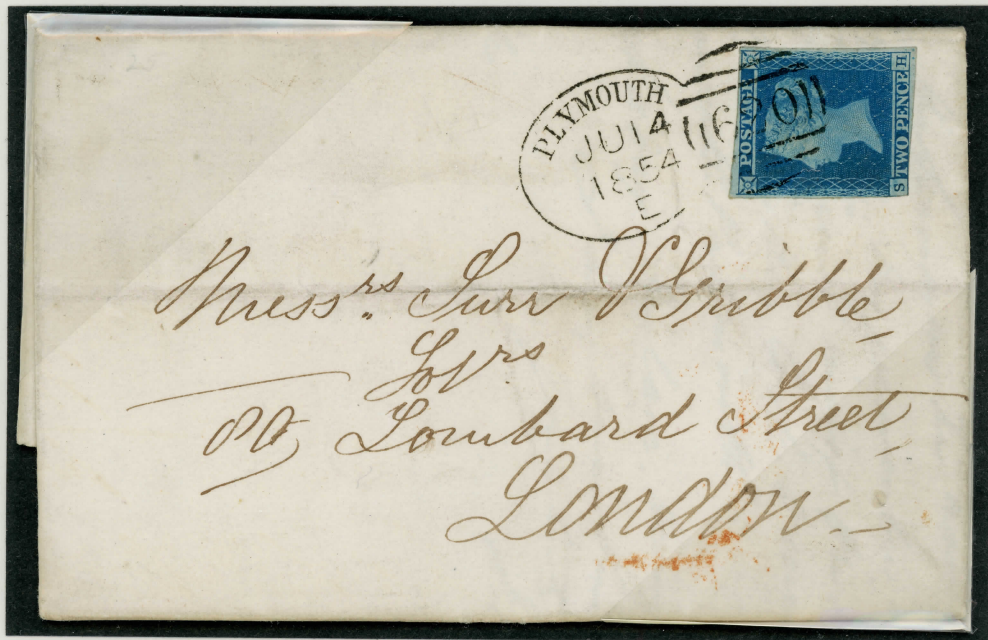 PLYMOUTH
JU14
1854
E
620
POSTAGE
TWO PENCE
S H
Messrs. Surr & Gribble
Solrs
80, Lombard Street
London